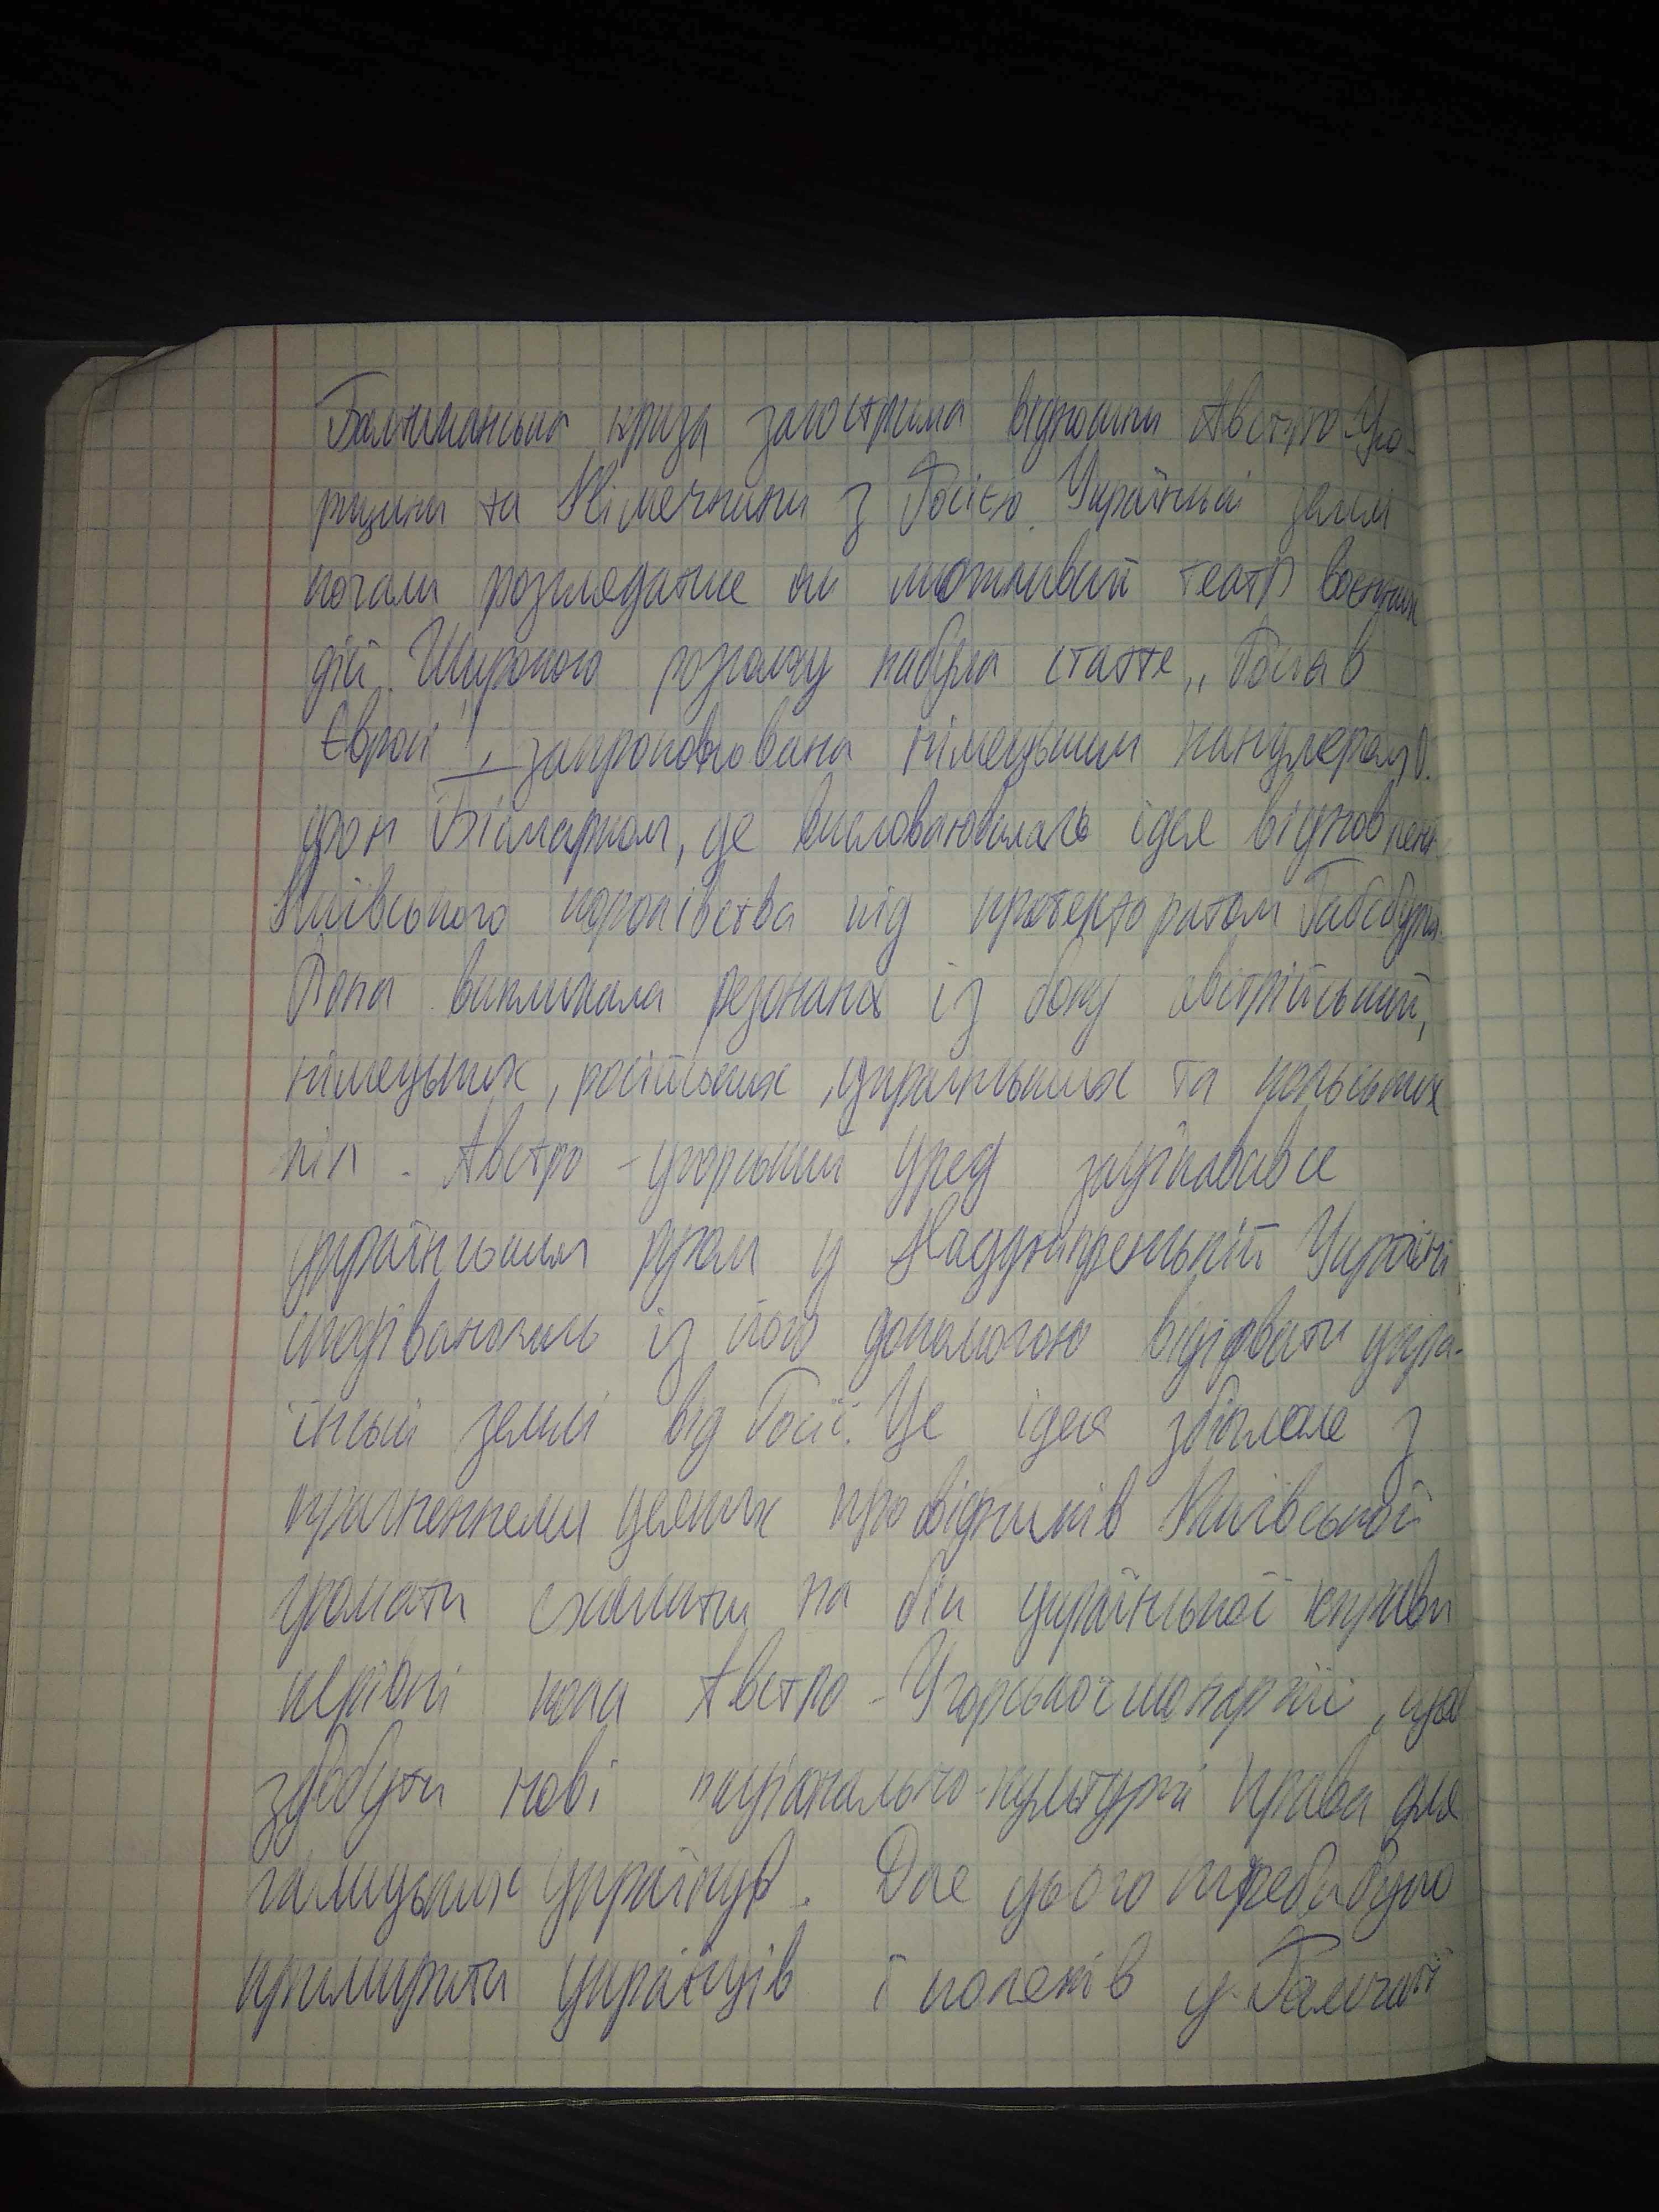 Балканська криза загострила відносини Австро-Уго-
рщини та Німеччини з Росією. Українські землі
почали розглядатися як можливий театр воєнних
дій. Широкого розголосу набула стаття „Росія в
Європі", запропонована німецьким канцлером О.
фон Бісмарком, де висловлювалась ідея відновлен
Київського королівства під протекторатом Габсбургів.
Вона викликала резонанс із боку австрійський,
німецьких, російських, українських та польських
кіл. Австро-угорський уряд зацікавився
українським рухом у Наддніпрянській Україні
сподіваючись із його допомогою відірвати укра-
їнські землі від Росії. Це ідея збіглася з
прагненнями деяких провідників Київської
громати схилити на бік української справи
керівні кола Австро-Угорської монархії, щоб
здобути нові національно-культурні права для
галицьких українців. Для цього треба було
примирити українців і поляків у Галичині